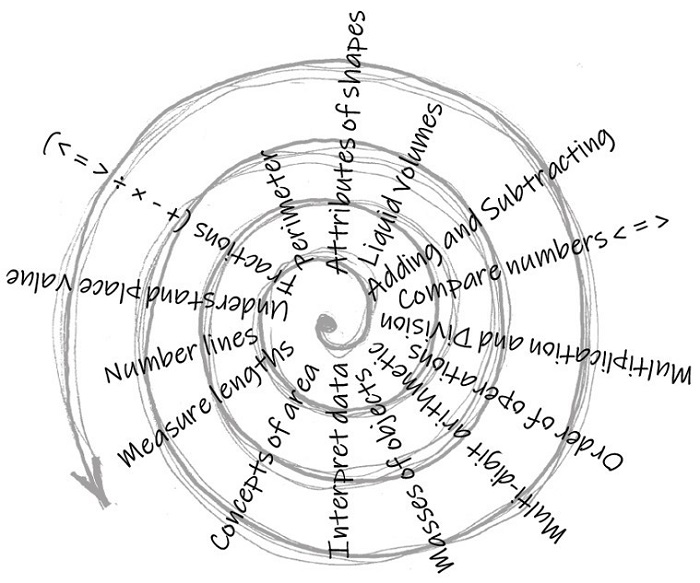 Attributes of shapes
Liquid Volumes
Adding and Subtracting
Compare numbers < = >
Multiplication and Division
Order of operations
Multi-digit arithmetic
Masses of objects
Interpret data
Concepts of area
Measure lengths
Number lines
Understand place value
Fractions (+ - × ÷ < = >)
Perimeter